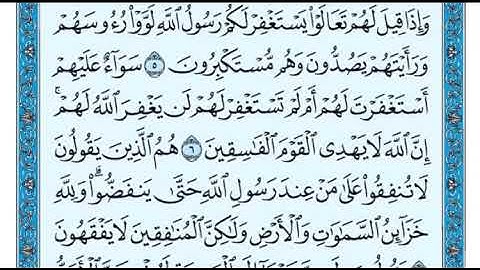 وَإِذَا قِيلَ لَهُمْ تَعَالَوْا۟ يَسْتَغْفِرْ لَكُمْ رَسُولُ ٱللَّهِ لَوَّوْا۟ رُءُوسَهُمْ
وَرَأَيْتَهُمْ يَصُدُّونَ وَهُم مُّسْتَكْبِرُونَ ٥ سَوَآءٌ عَلَيْهِمْ
أَسْتَغْفَرْتَ لَهُمْ أَمْ لَمْ تَسْتَغْفِرْ لَهُمْ لَن يَغْفِرَ ٱللَّهُ لَهُمْ ۚ
إِنَّ ٱللَّهَ لَا يَهْدِى ٱلْقَوْمَ ٱلْفَـٰسِقِينَ ٦ هُمُ ٱلَّذِينَ يَقُولُونَ
لَا تُنفِقُوا۟ عَلَىٰ مَنْ عِندَ رَسُولِ ٱللَّهِ حَتَّىٰ يَنفَضُّوا۟ ۗ وَلِلَّهِ
خَزَآئِنُ ٱلسَّمَـٰوَٰتِ وَٱلْأَرْضِ وَلَـٰكِنَّ ٱلْمُنَـٰفِقِينَ لَا يَفْقَهُونَ